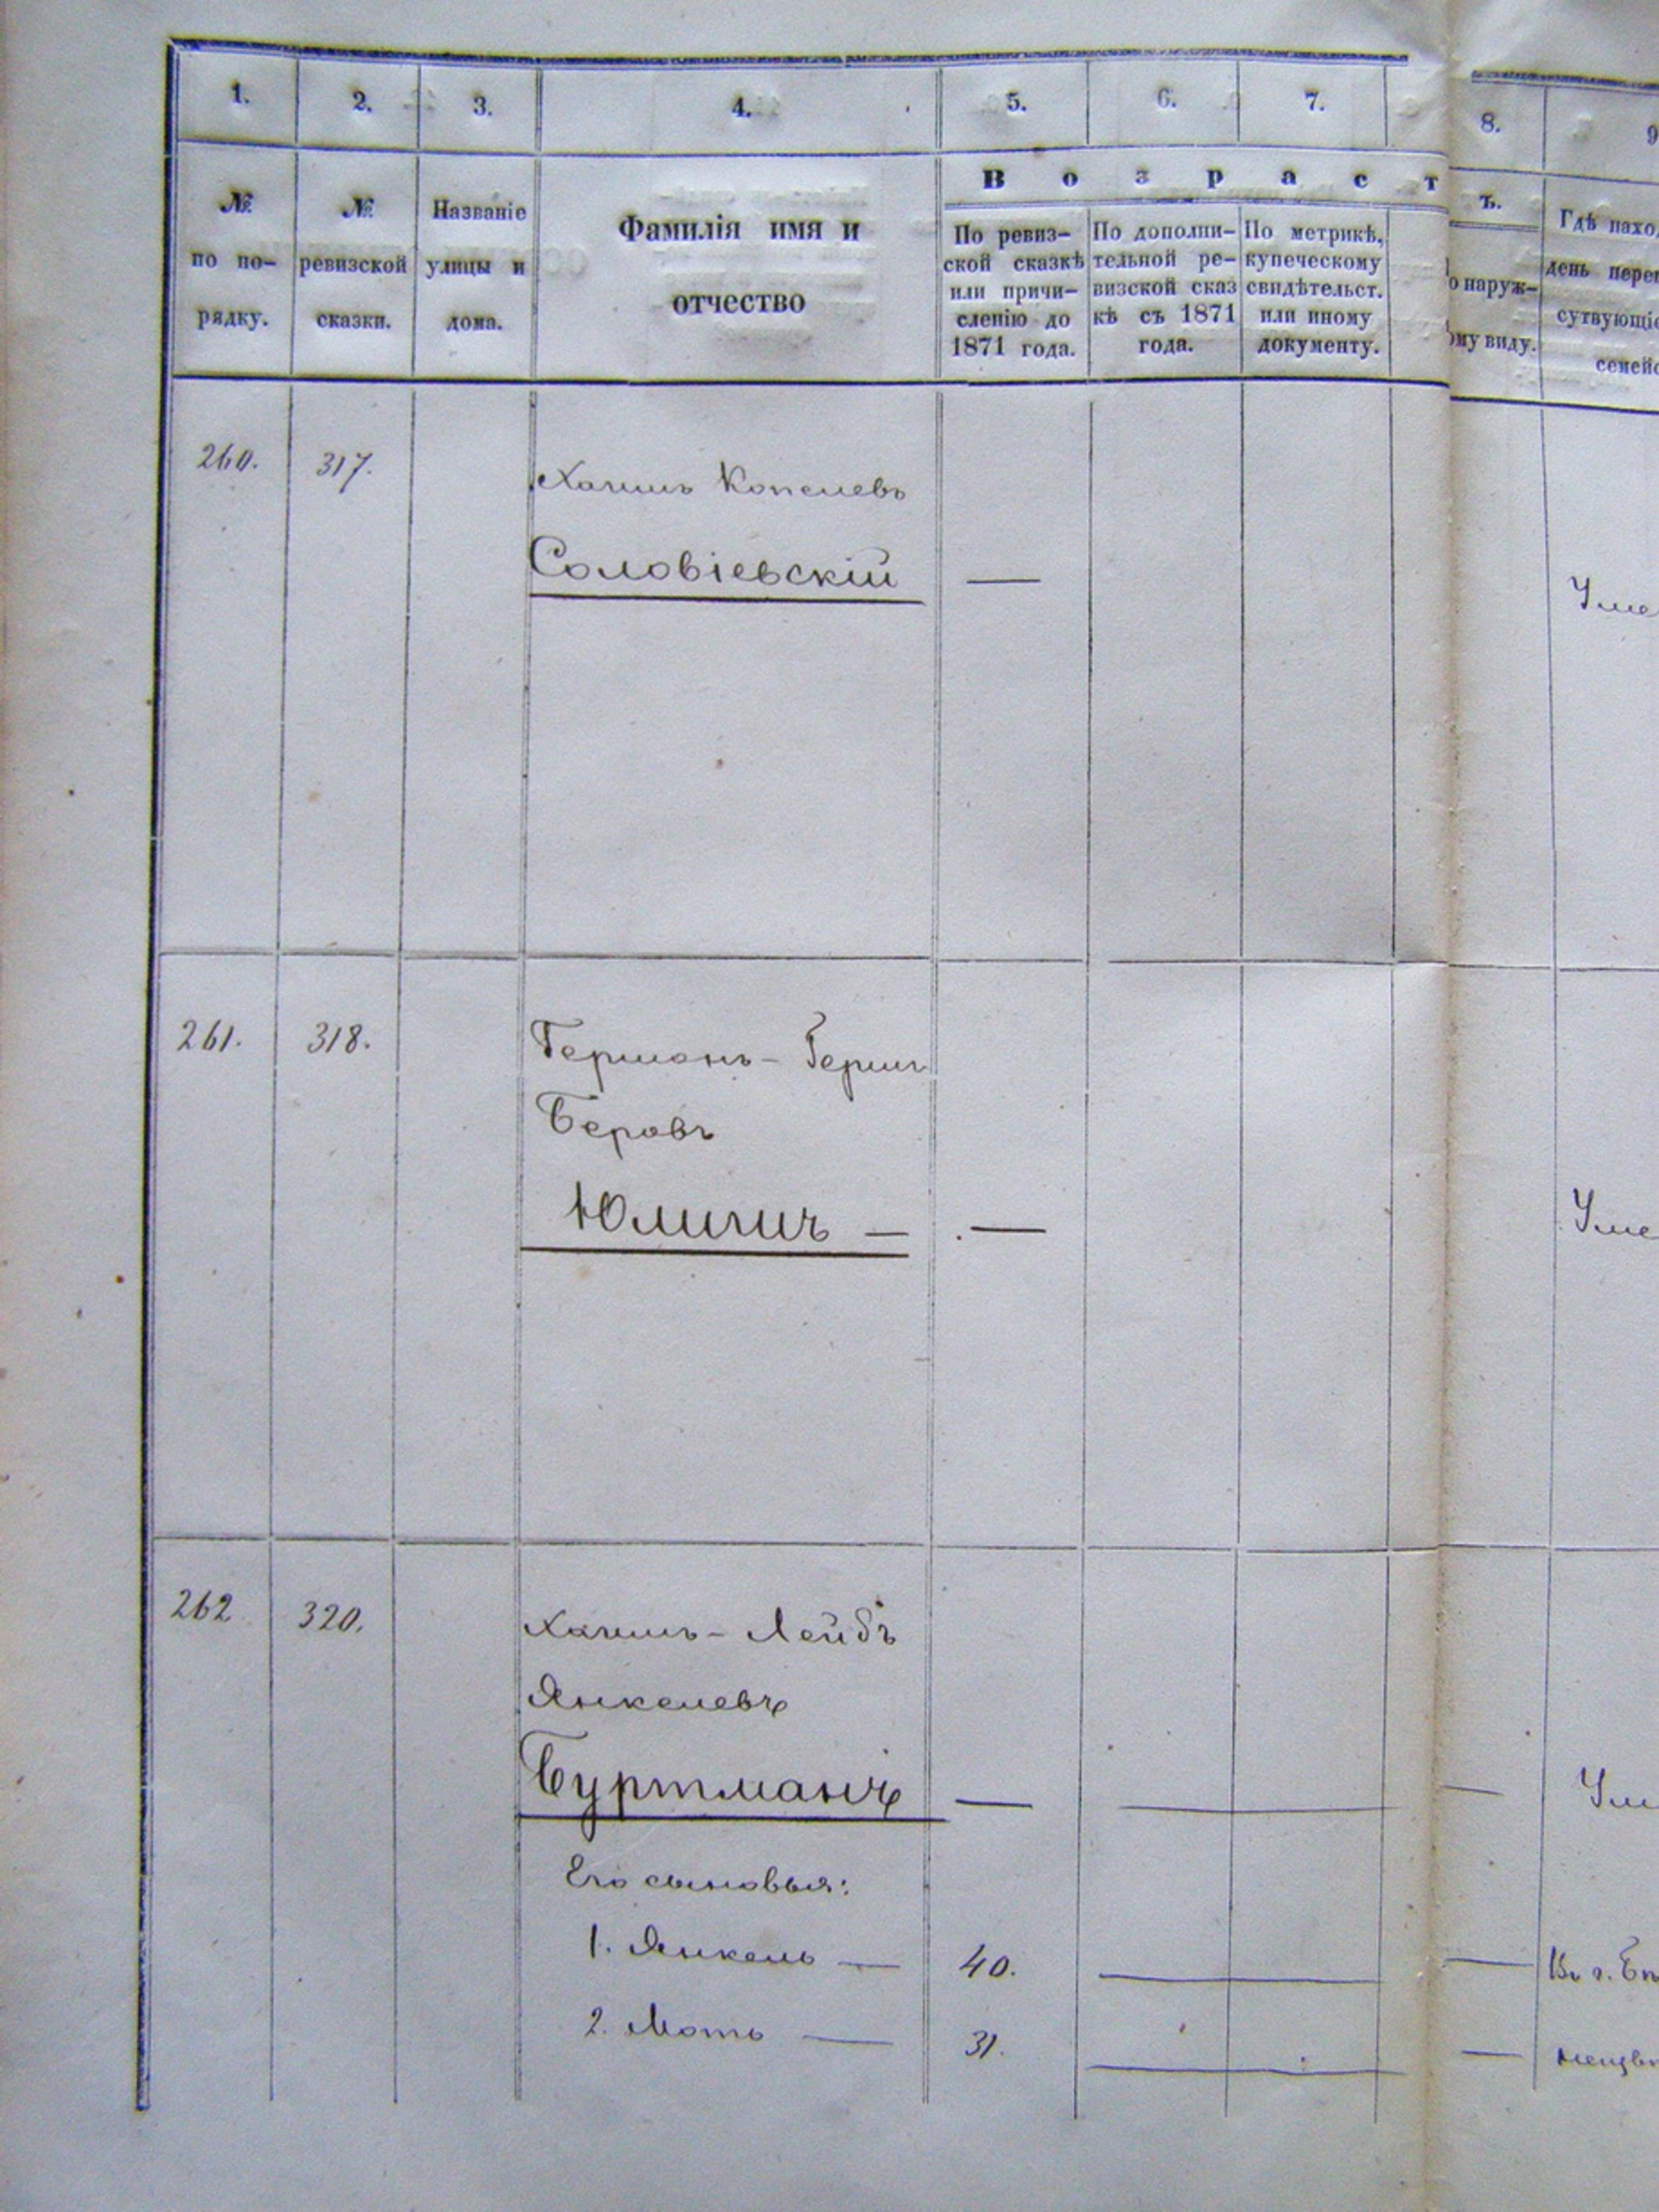 1. 2. 3. 4. 5. 6. 7. 8. 9
№ по по-рядку.
№ ревизской сказки.
Названіе улицы и дома.
Фамилія имя и отчество
Возраст
ъ.
По ревиз-
ской сказкѣ
или причи-
сленію до
1871 года.
По дополни-
тельной ре-
визской сказ
кѣ съ 1871
года.
По метрикѣ,
купеческому
свидѣтельст.
или иному
документу.
о наруж-
ому виду.
Гдѣ нахо
день переп
сутвующіе
семейс
260. 317. Хаимъ Копелевъ
Соловіевскій —
Уме
261. 318. Германъ - Герш
Беровъ
—
Уме
262 320. Хаимъ - Лейбъ
Янкелевъ
Буртманъ — — Ум
Его сыновья:
1. Янкель — 40. — — Въ г.
2. Мотъ — 31. — —